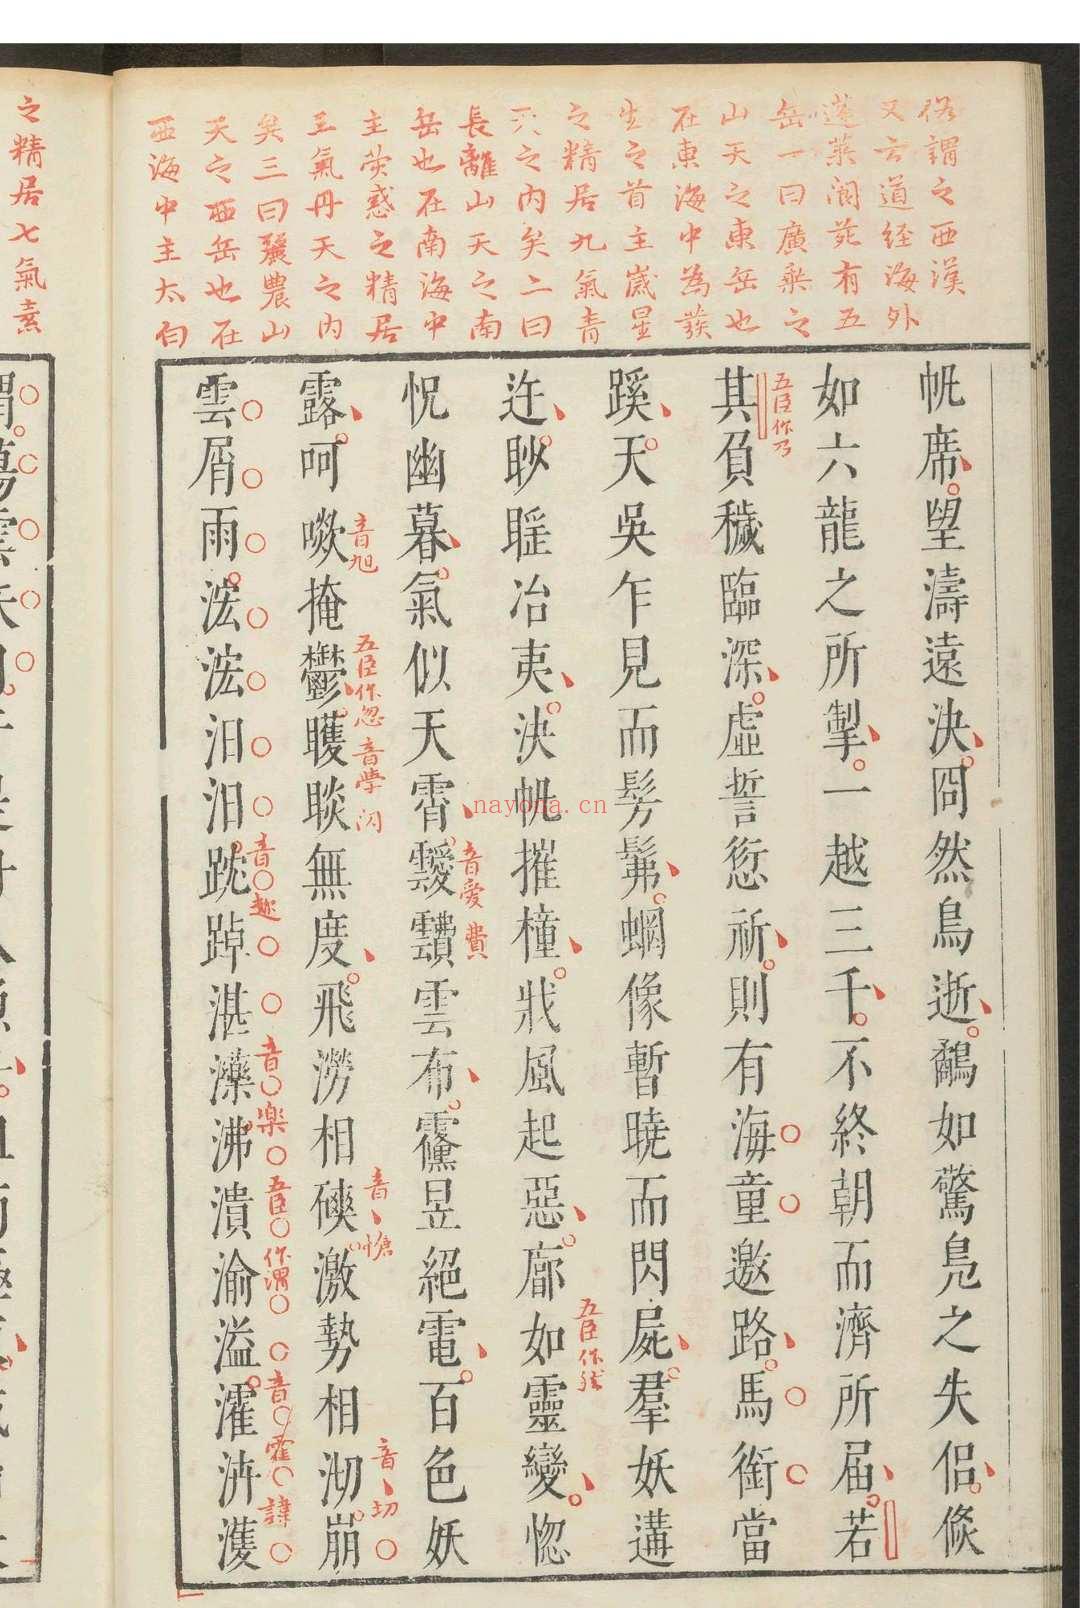 俗謂之西漢
又云道経海外
蓬萊閬苑有五
岳一曰廣乗之
山天之東岳也
在東海中為發
生之首主嵗星
之精居九氣青
天之内矣二曰
長離山天之南
岳也在南海中
主熒惑之精居
三氣丹天之内
矣三曰麗農山
天之西岳也在
西海中主太白
之精居七氣素
帆席望濤遠決冏然鳥逝鷸如驚鳬之失侣倐
如六龍之所掣一越三千不終朝而濟所届若
五臣作乃
其負穢臨深虛誓愆祈則有海童邀路馬銜當
蹊天吳乍見而髣髴蝄像暫曉而閃屍羣妖遘
五臣作然
迕眇䁘冶夷決帆摧橦戕風起惡廓如靈變惚
怳幽暮氣似天霄靉靅雲布䨥昱絕電百色妖
音愛 費
露呵㗵掩鬱矆睒無度飛澇相磢激勢相沏崩
音旭
五臣作忽
音學 閃
音愴
音切
雲屑雨浤浤汩汩踸踔湛藻沸潰渝溢濯泋濩
音
音樂
五臣作渭
音霍 諱
nayona.cn